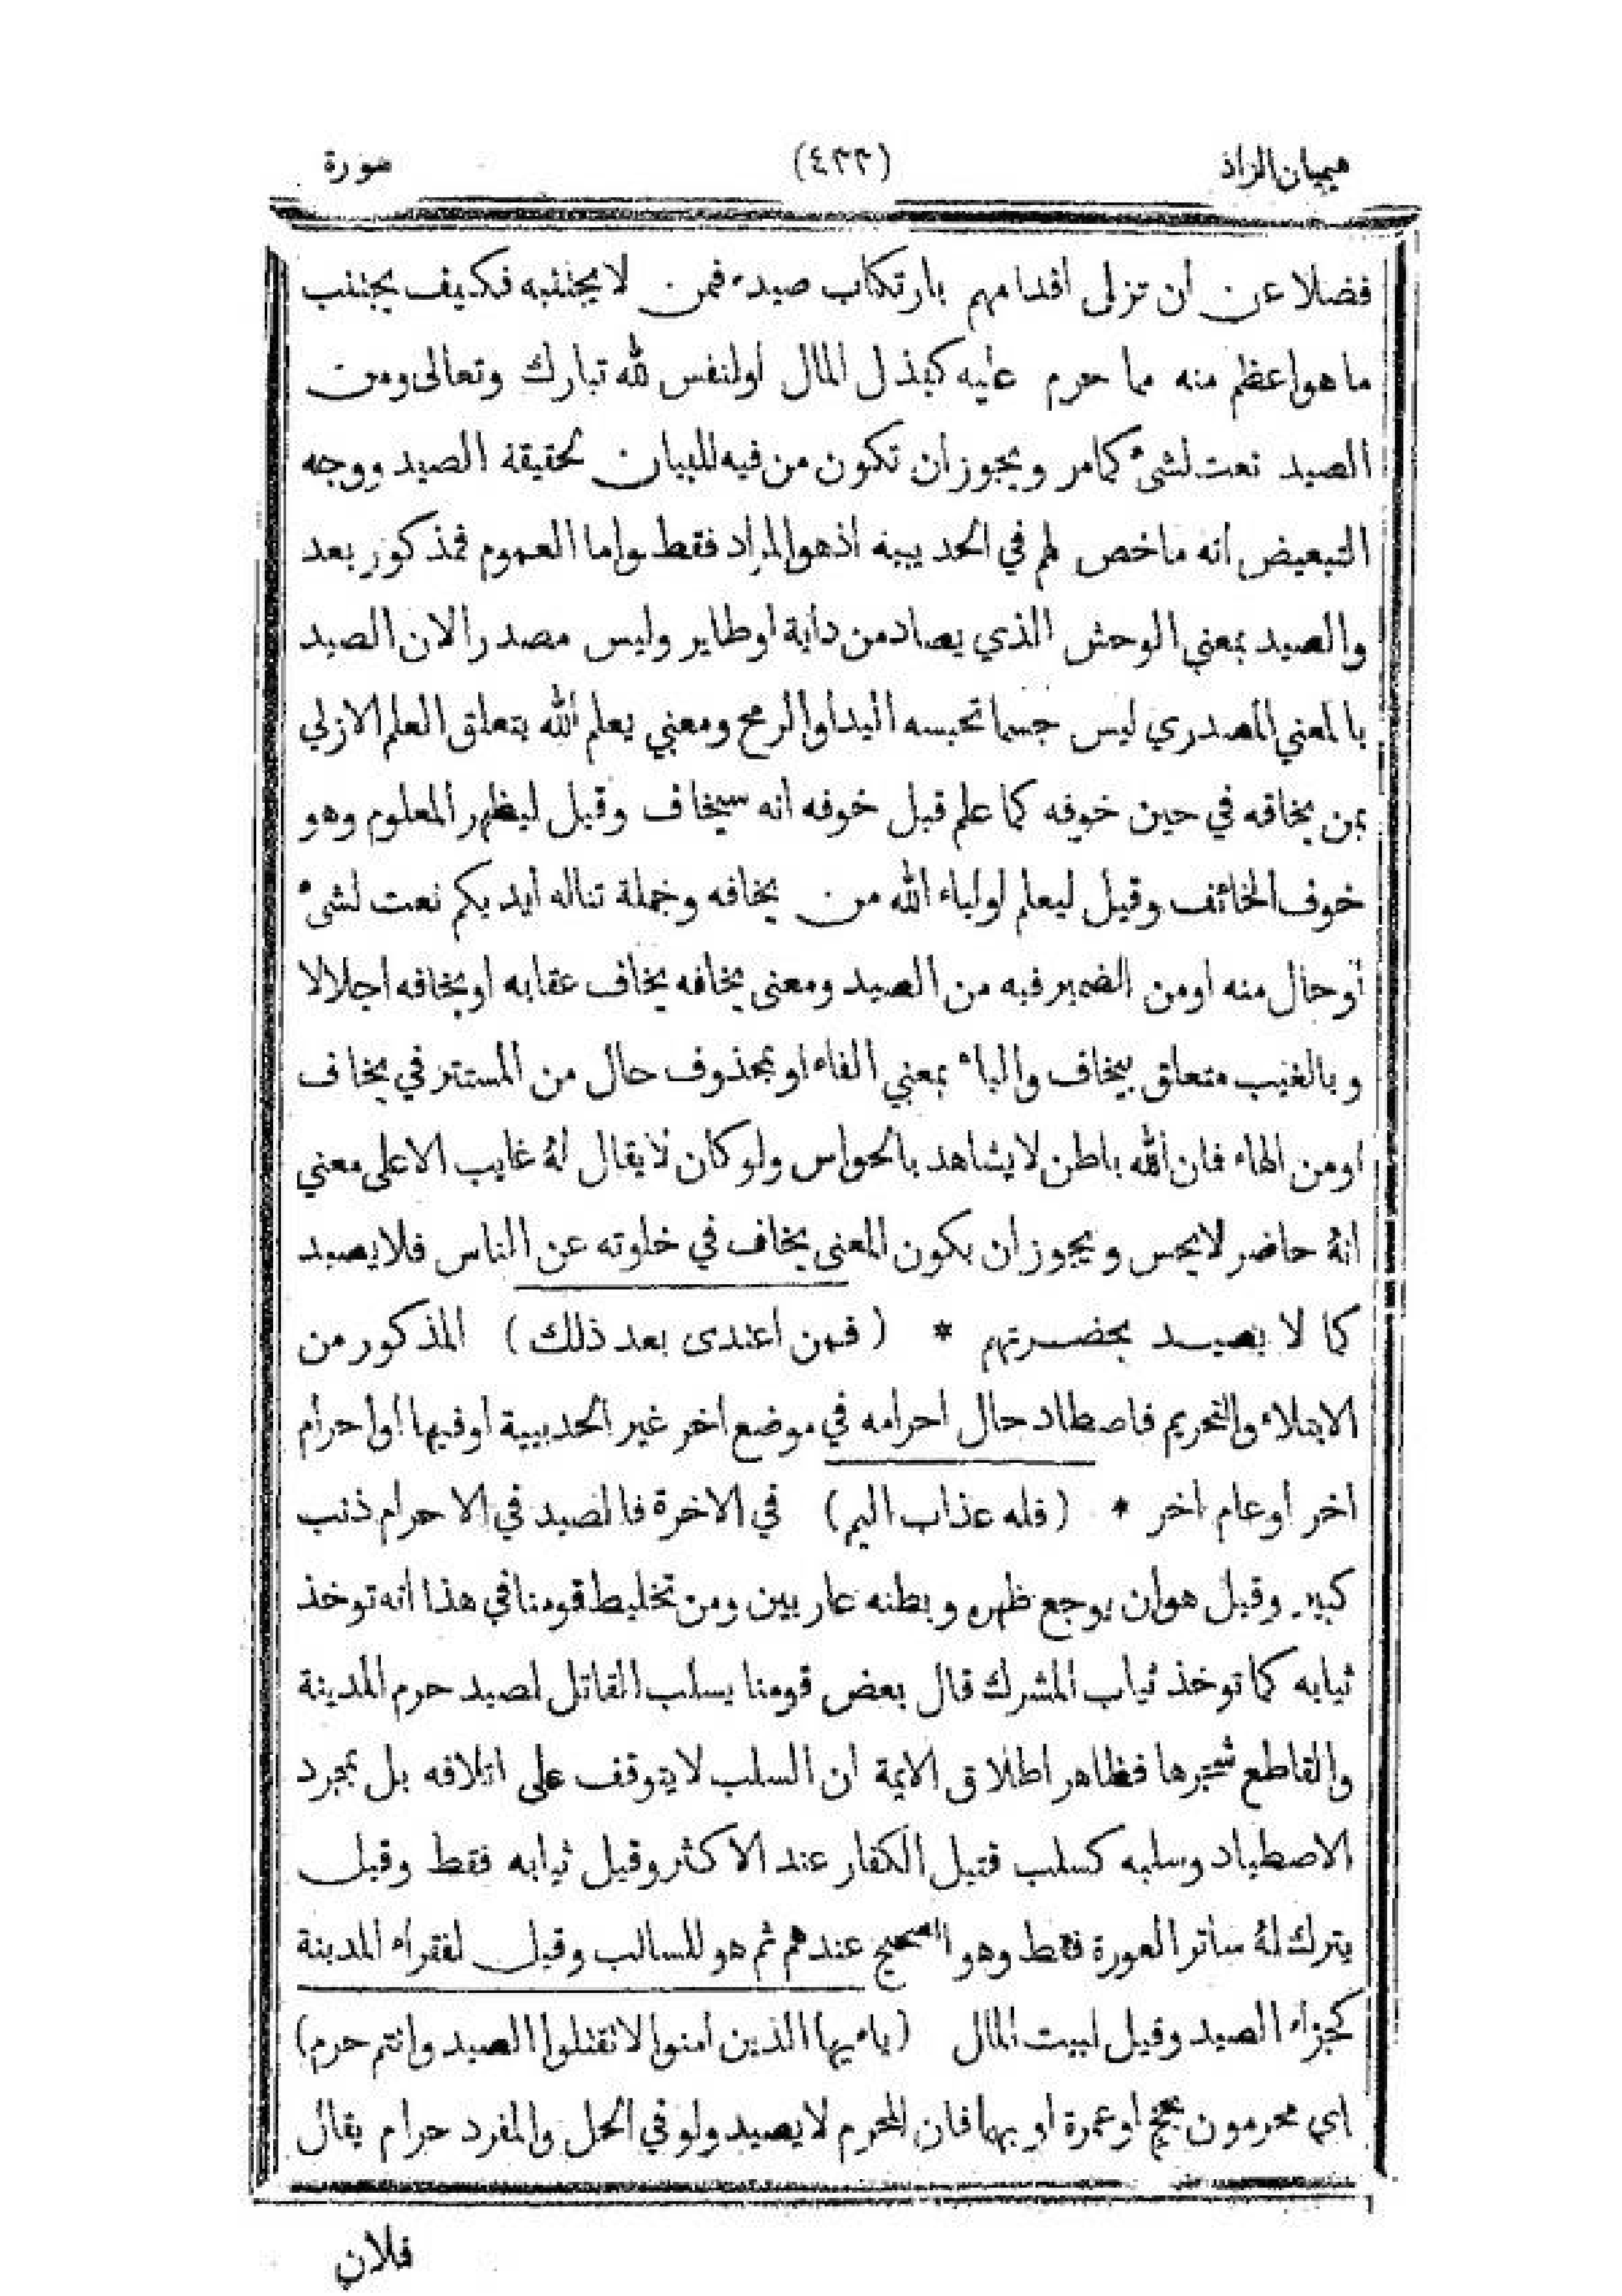 هيميان الزاد (٤٣٣) سورة
فضلا عن ان تزل اقدامهم بارتكاب صيده فمن لا يجتنبه فكيف يجتنب
ما هو اعظم منه مما حرم عليه كبذل المال او لنفس لله تبارك وتعالى ومن
الصيد نعت لشىء كمامر ويجوز ان تكون من فيه للبيان لحقيقة الصيد ووجه
التبعيض انه ما خص لهم في الحديبيه اذ هو المراد فقط واما العموم فمذكور بعد
والصيد بمعني الوحش الذي يصاد من دابة او طاير وليس مصدرا لان الصيد
بالمعني المصدري ليس جسما تحبسه اليد او الرمح ومعني يعلم الله يتعلق العلم الازلي
بمن يخافه في حين خوفه كما علم قبل خوفه انه سيخاف وقيل ليظهر المعلوم وهو
خوف الخائف وقيل ليعلم اولياء الله من يخافه وجملة تناله ايديكم نعت لشىء
أو حال منه او من الضمير فيه من الصيد ومعنى يخافه يخاف عقابه او يخافه اجلالا
وبالغيب متعلق بيخاف والباء بمعني الفاء او بمحذوف حال من المستتر في يخاف
او من الهاء فان الله باطن لا يشاهد بالحواس ولو كان لا يقال له غايب الا على معني
انه حاضر لا يحس ويجوز ان يكون المعنى يخاف في خلوته عن الناس فلا يصيد
كما لا يصيد بحضرتهم * (فمن اعتدى بعد ذلك) المذكور من
الابتلاء والتحريم فاصطاد حال احرامه في موضع اخر غير الحديبية او فيها او احرام
اخر او عام اخر * (فله عذاب اليم) في الاخرة فالصيد في الاحرام ذنب
كبير وقيل هو ان يوجع ظهره وبطنه عاريين ومن تخليط قومنا في هذا انه توخذ
ثيابه كما توخذ ثياب المشرك قال بعض قومنا يسلب القاتل لصيد حرم المدينة
والقاطع شجرها فظاهر اطلاق الايمة ان السلب لا يتوقف على اتلافه بل بمجرد
الاصطياد وسلبه كسلب قتيل الكفار عند الاكثر وقيل ثيابه فقط وقيل
يترك له ساتر العورة فقط وهو الصحيح عندهم ثم هو للسالب وقيل لفقراء المدينة
كجزاء الصيد وقيل لبيت المال (ياءيها الذين امنوا لا تقتلوا الصيد وانتم حرم)
اي محرمون بحج او عمرة او بهما فان المحرم لا يصيد ولو في الحل والمفرد حرام يقال
فلان